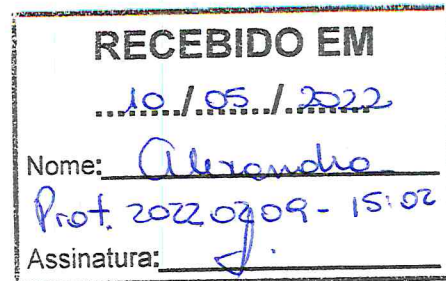 RECEBIDO EM
10 / 05 / 2022
Nome: Alexandra
Prot. 20220209 - 15:02
Assinatura: